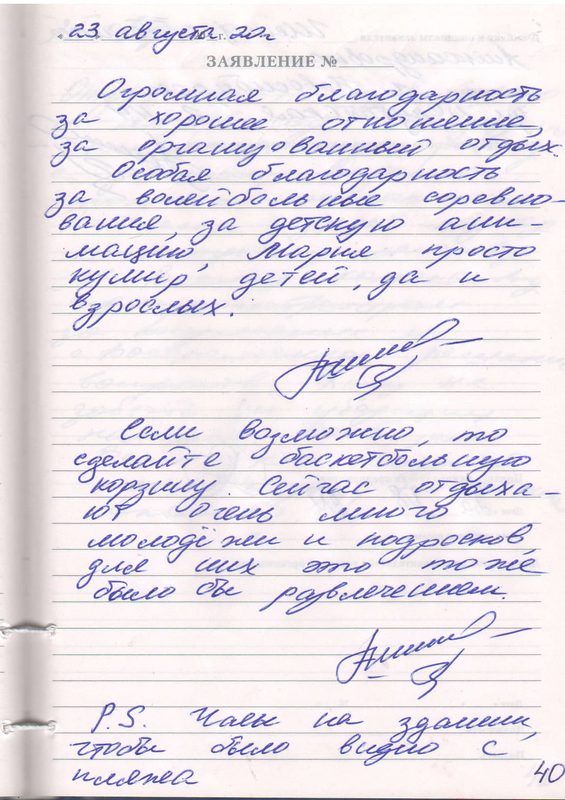 23 августы 20 г.
ЗАЯВЛЕНИЕ №
Огромная благодарность
за хорошее отношение,
за организованный отдых.
Особая благодарность
за волейбольные соревно-
вания, за детскую ани-
мацию, Мария просто
кумир, детей, да и
взрослых.
Если возможно, то
сделайте баскетбольную
корзину. Сейчас отдыха-
ют очень много
молодёжи и подросков,
для них это тоже
было бы развлечением.
P.S. Часы на здании,
чтобы было видно с
пляжа
40